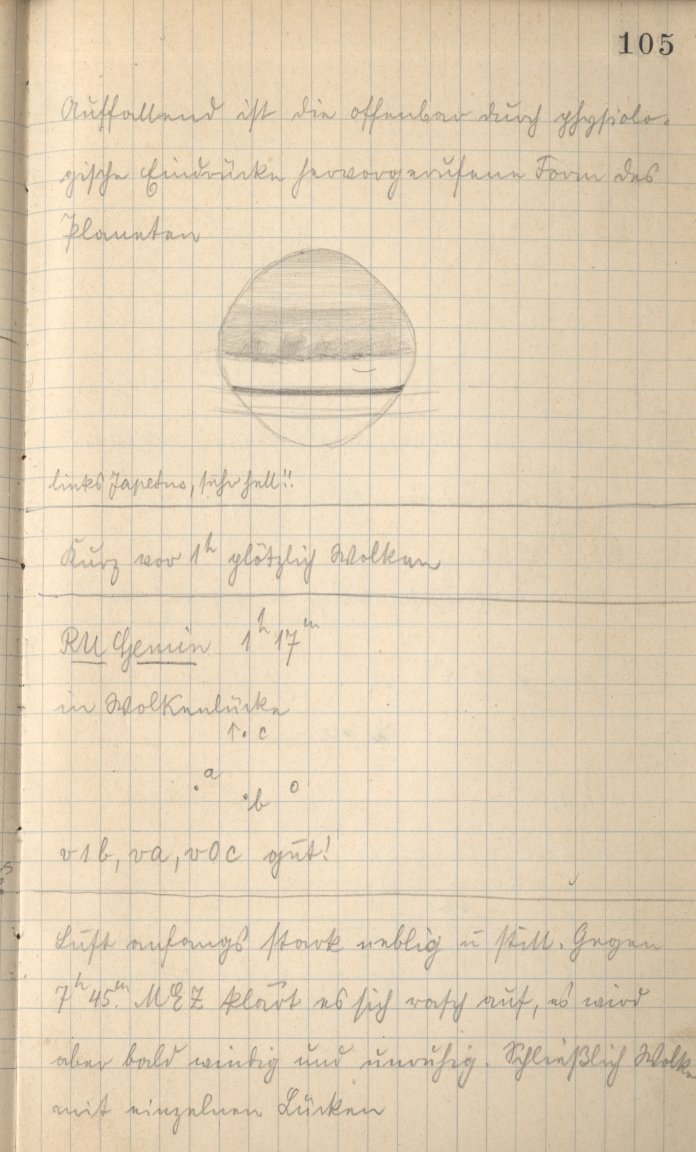 105
Auffallend ist die offenbar durch physiolo-
gische Eindrücke hervorgerufene Form des
Planeten
links Japetus, sehr hell!!
Kurz vor 1h plötzlich Wolken
RU Gemin 1h 17m
in Wolkenlücke
↑. c
. a
. b o
v1b, va, v0c gut!
Luft anfangs stark neblig u still. Gegen
7h 45m. MEZ klärt es sich rasch auf, es wird
aber bald windig und unruhig. Schließlich Wolken
mit einzelnen Lücken